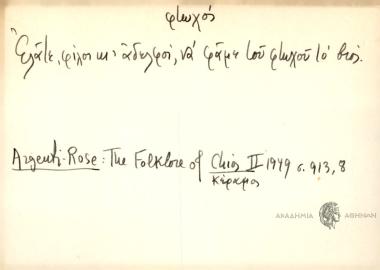 φτωχός
Ἐλᾶτε, φίλοι κι' ἀδελφοί, νὰ φᾶμε τοῦ φτωχοῦ τὸ βιός.
Argenti-Rose: The Folklore of Chios II 1949 σ. 913, 8
Κέραμος
ΑΚΑΔΗΜΙΑ ΑΘΗΝΩΝ